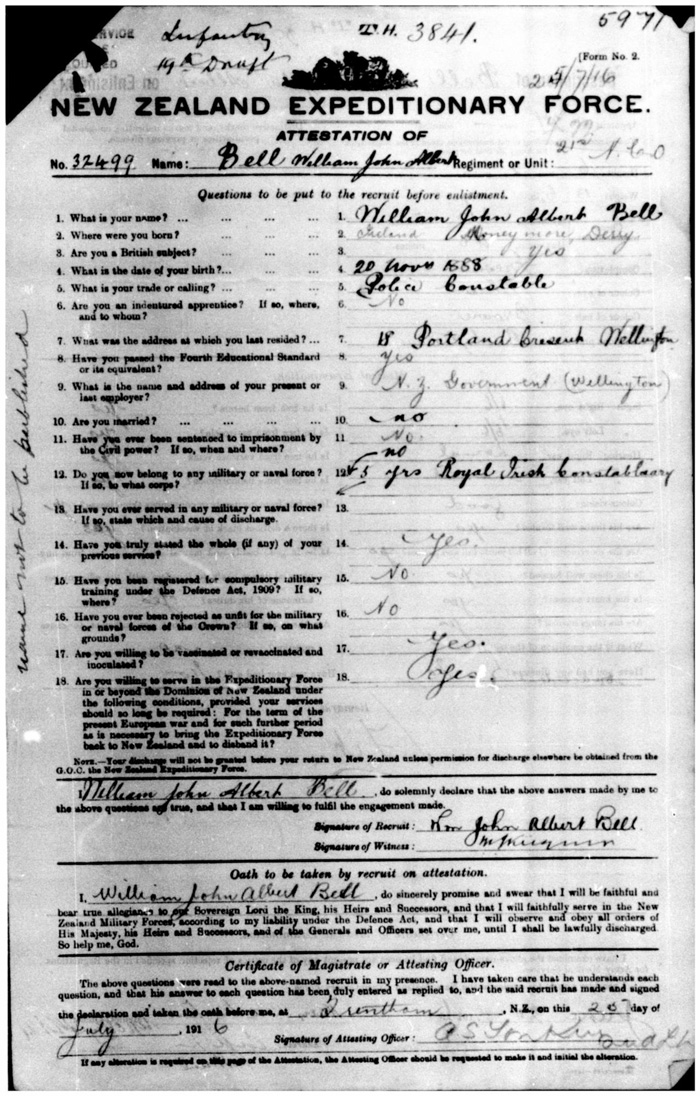 5971
Infantry T.H. 3841.
19th Draft
[Form No. 2.
25/7/16
NEW ZEALAND EXPEDITIONARY FORCE.
ATTESTATION OF
No. 32499 Name: Bell William John Albert Regiment or Unit: 21st
Questions to be put to the recruit before enlistment.
1. What is your name? ... ... ... 1. William John Albert Bell
2. Where were you born? ... ... 2. Ireland Moneymore, Derry
3. Are you a British subject? ... ... 3. Yes
4. What is the date of your birth?... ... 4. 20 Novr 1888
5. What is your trade or calling? ... ... 5. Police Constable
6. Are you an indentured apprentice? If so, where, 6. No
and to whom?
7. What was the address at which you last resided? ... 7. 18 Portland Cresent Wellington
8. Have you passed the Fourth Educational Standard 8. Yes
or its equivalent?
9. What is the name and address of your present or 9. N.Z. Government (Wellington)
last employer?
10. Are you married? ... ... ... ... 10. no
11. Have you ever been sentenced to imprisonment by 11 No.
the Civil power? If so, when and where?
no
12. Do you now belong to any military or naval force? 12. 5 yrs Royal Irish Constablaary
If so, to what corps?
13. Have you ever served in any military or naval force? 13.
If so, state which and cause of discharge.
14. Have you truly stated the whole (if any) of your 14. Yes.
previous service?
15. Have you been registered for compulsory military 15. No
training under the Defence Act, 1909? If so,
where?
16. Have you ever been rejected as unfit for the military 16. No
or naval forces of the Crown? If so, on what
grounds?
17. Are you willing to be vaccinated or revaccinated and 17. Yes.
inoculated?
18. Are you willing to serve in the Expeditionary Force 18. Yes.
in or beyond the Dominion of New Zealand under
the following conditions, provided your services
should so long be required: For the term of the
present European war and for such further period
as is necessary to bring the Expeditionary Force
back to New Zealand and to disband it?
name not to be published
NOTE.—Your discharge will not be granted before your return to New Zealand unless permission for discharge elsewhere be obtained from the
G.O.C. the New Zealand Expeditionary Force.
I, William John Albert Bell, do solemnly declare that the above answers made by me to
the above questions are true, and that I am willing to fulfil the engagement made.
Signature of Recruit: Wm John Albert Bell
Signature of Witness:
Oath to be taken by recruit on attestation.
I, William John Albert Bell, do sincerely promise and swear that I will be faithful and
bear true allegiance to our Sovereign Lord the King, his Heirs and Successors, and that I will faithfully serve in the New
Zealand Military Forces, according to my liability under the Defence Act, and that I will observe and obey all orders of
His Majesty, his Heirs and Successors, and of the Generals and Officers set over me, until I shall be lawfully discharged.
So help me, God.
Certificate of Magistrate or Attesting Officer.
The above questions were read to the above-named recruit in my presence. I have taken care that he understands each
question, and that his answer to each question has been duly entered as replied to, and the said recruit has made and signed
the declaration and taken the oath before me, at Trentham, N.Z., on this 25 day of
July, 1916
Signature of Attesting Officer:
If any alteration is required on this page of the Attestation, the Attesting Officer should be requested to make it and initial the alteration.